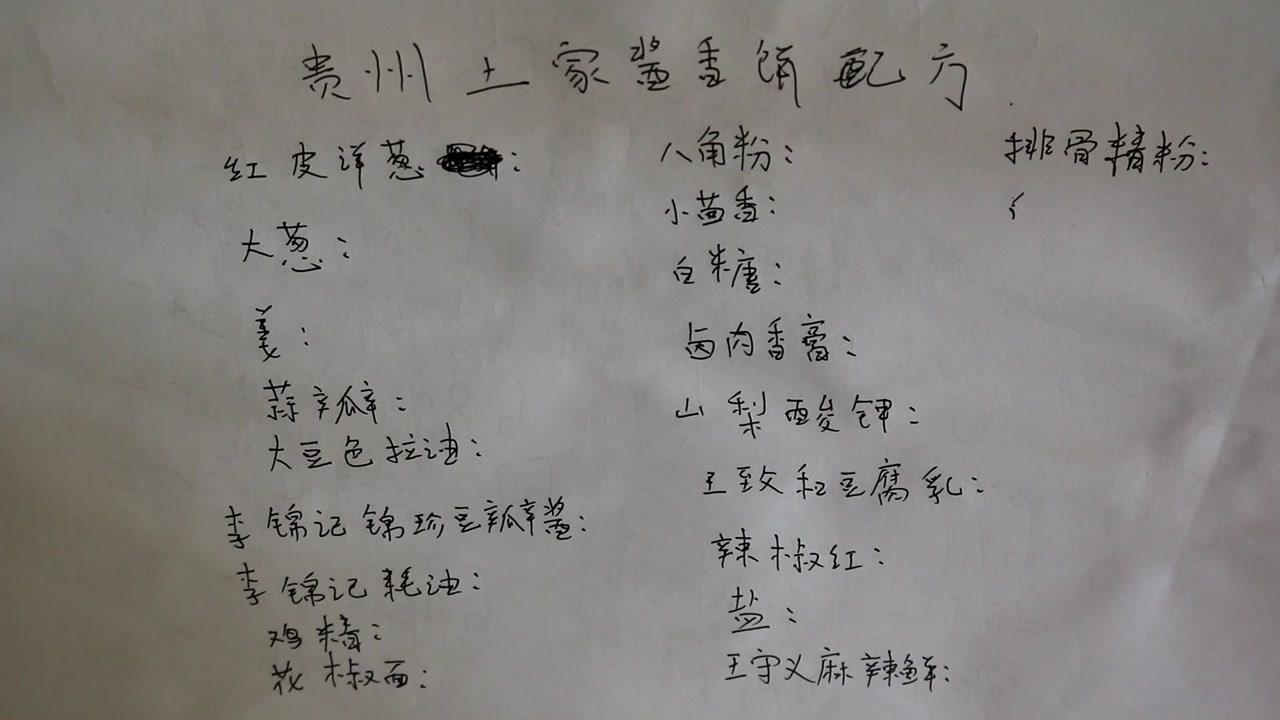 贵州土家酱香饼配方
红皮洋葱:
大葱:
姜:
蒜瓣:
大豆色拉油:
李锦记锦珍豆瓣酱:
李锦记耗油:
鸡精:
花椒面:
八角粉:
小茴香:
白糖:
卤肉香膏:
山梨酸钾:
王致和豆腐乳:
辣椒红:
盐:
王守义麻辣鲜:
排骨精粉: